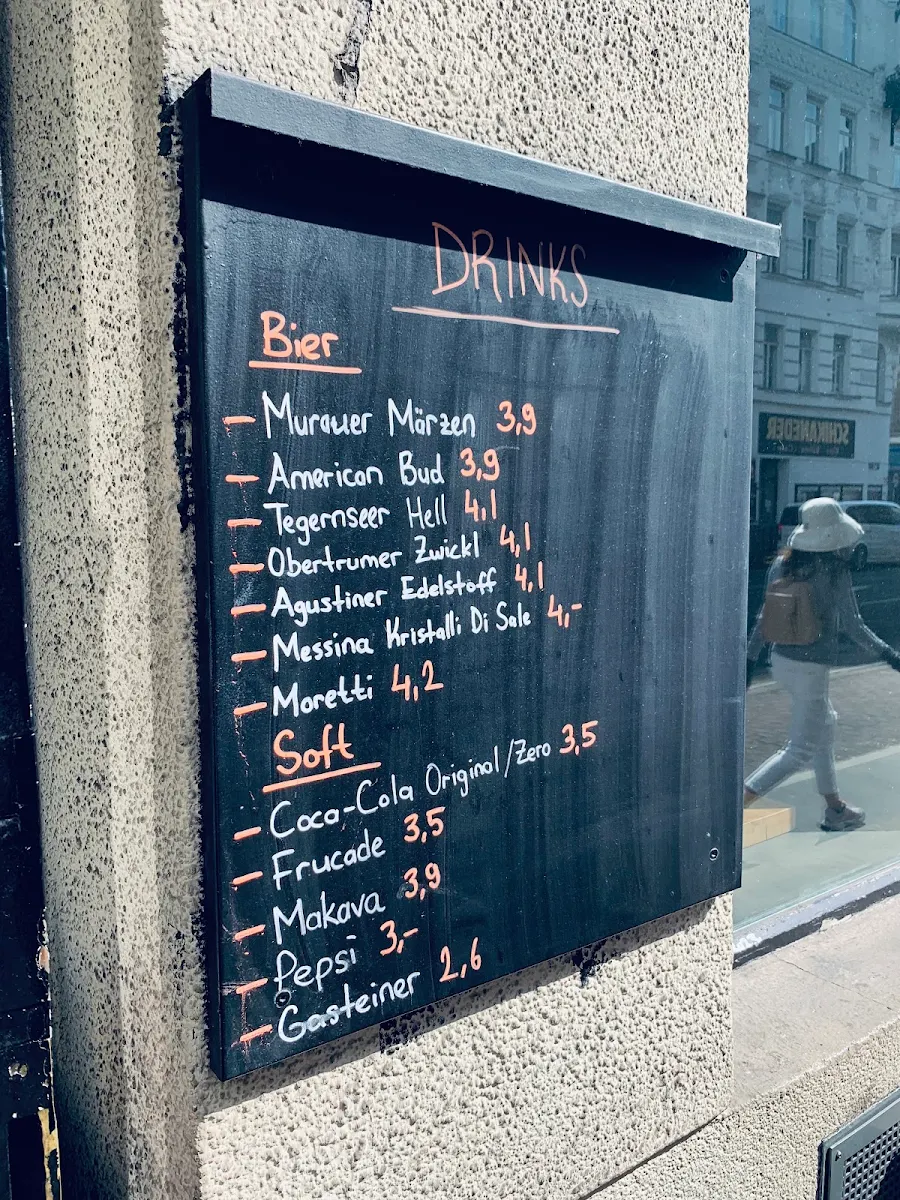 DRINKS
Bier
- Murauer Märzen 3,9
- American Bud 3,9
- Tegernseer Hell 4,1
- Obertrumer Zwickl 4,1
- Agustiner Edelstoff 4,1
- Messina Kristalli Di Sale 4,-
- Moretti 4,2
Soft
- Coca-Cola Original/Zero 3,5
- Frucade 3,5
- Makava 3,9
- Pepsi 3,-
- Gasteiner 2,6
SCHIKANEDER